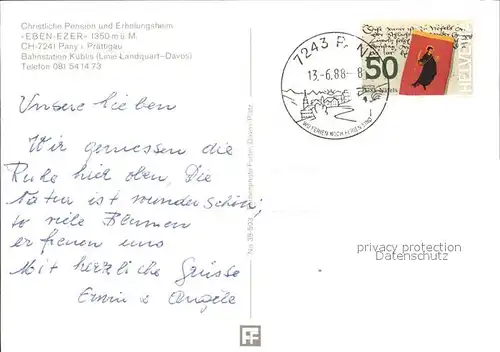 Christliche Pension und Erholungsheim
«EBEN-EZER» 1350 m ü. M.
CH-7241 Pany i. Prättigau
Bahnstation Küblis (Linie Landquart–Davos)
Telefon 081 54 14 73
Unsere Lieben
Wir geniessen die
Ruhe hier oben, Die
Natur ist wunderschön;
so viele Blumen
erfreuen uns
Mit herzliche Grüsse
Erwin & Angèle
7243
13.-6.88-8
WO FERIEN NOCH FERIEN SIND
50
HELVETIA
privacy protection
Datenschutz